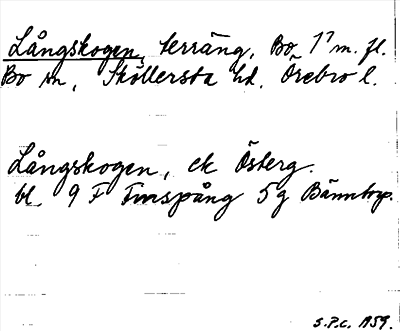 Långskogen, terräng, Bo 1⁷ m. fl.
Bo sn, Sköllersta hd, Örebro l.
Långskogen, ek Österg.
bl. 9 F Finspång 5g Bänntorp.
S.P.C. 1959.